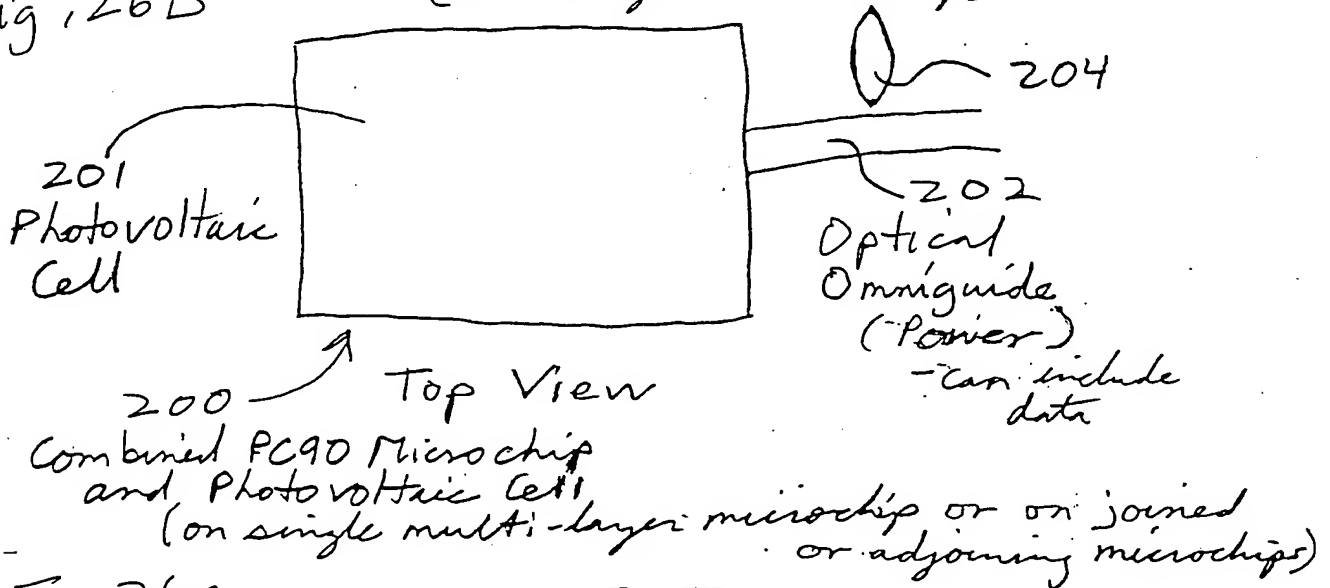 ig, 26B
204
201
Photovoltaic
Cell
202
Optical
Omniguide
(Power)
- can include
data
200
Top View
Combined PC90 Microchip
and Photovoltaic Cell
(on single multi-layer microchip or on joined
or adjoining microchips)